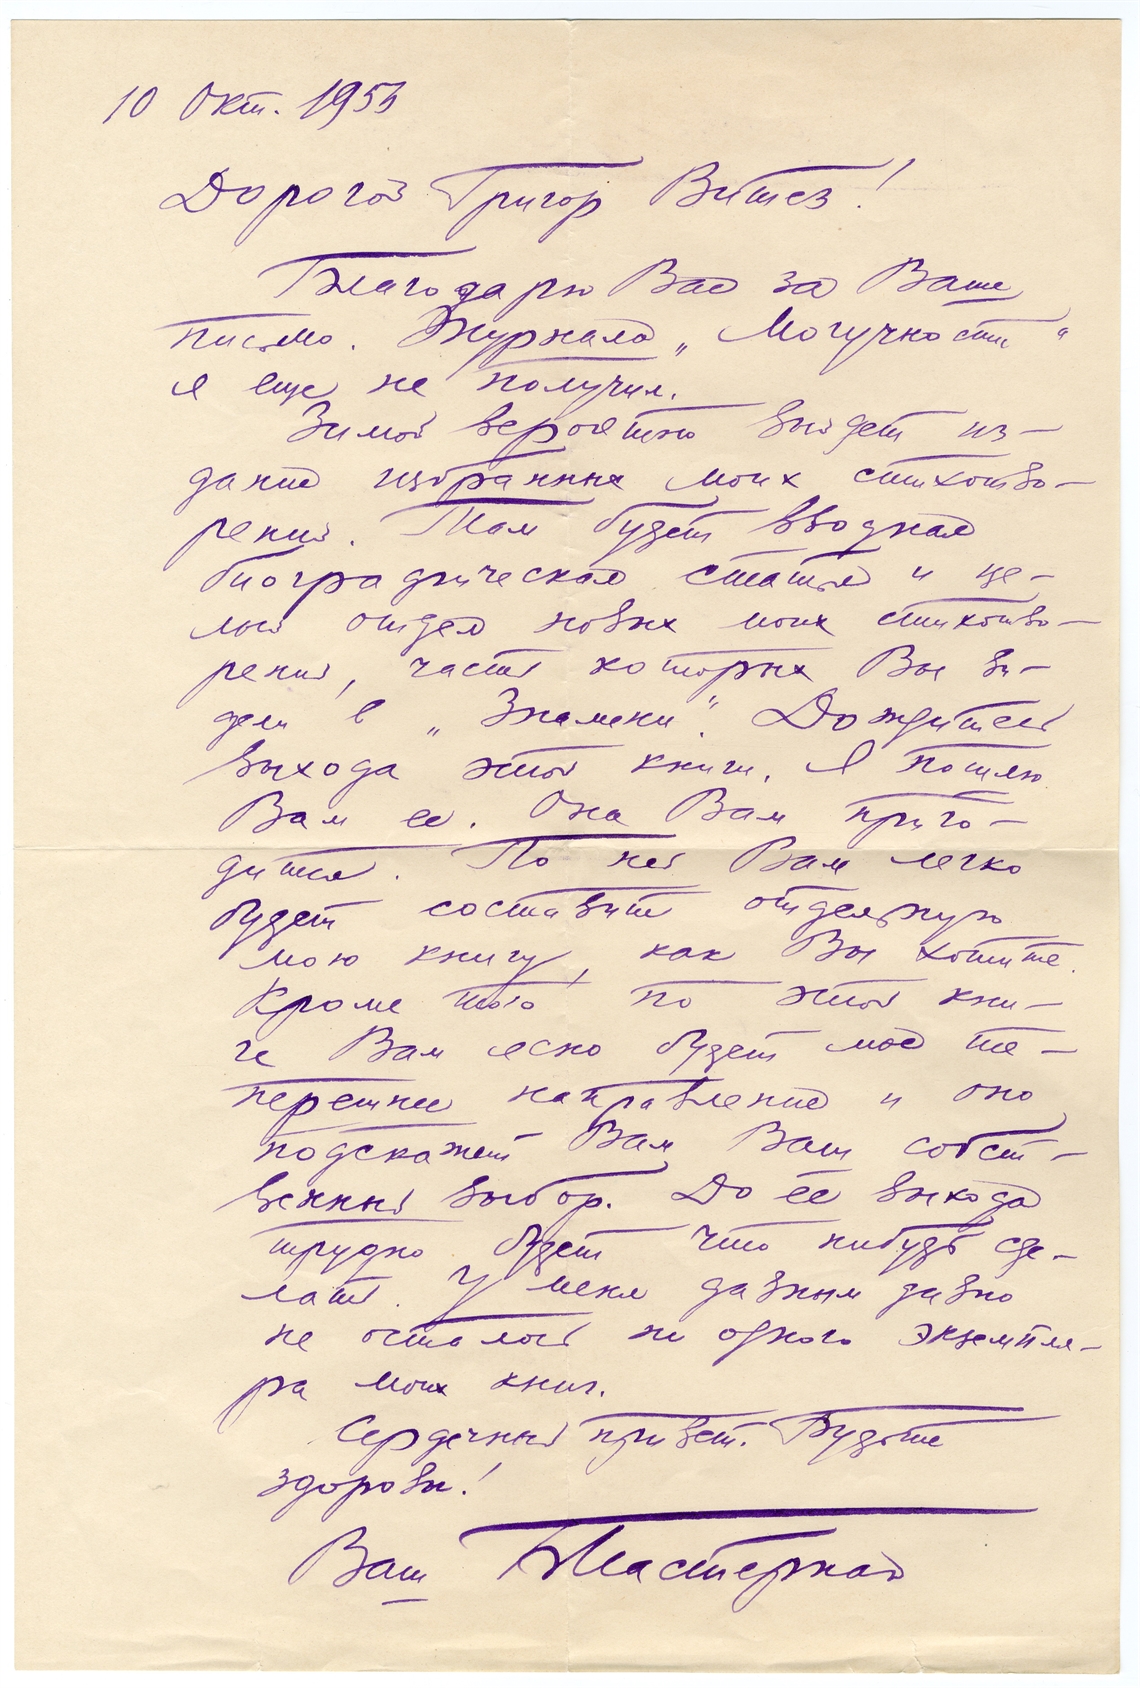 10 Окт. 195
Дорогой Григор Витез!
Благодарю Вас за Ваше
письмо. Журнала „Могучности“
я еще не получил.
Зимой вероятно выйдет из-
дание избранных моих стихотво-
рений. Там будет вводная
биографическая статья и це-
лый отдел новых моих стихотво-
рений, часть которых Вы ви-
дели в „Знамени“. Дождитесь
выхода этой книги. Я пошлю
Вам ее. Она Вам приго-
дится. По ней Вам легко
будет составить отдельную
мою книгу, как Вы хотите.
Кроме того по этой кни-
ге Вам ясно будет мое те-
перешнее направление и оно
подскажет Вам Ваш собст-
венный выбор. До её выхода
трудно будет что нибудь сде-
лать. У меня давным давно
не осталось ни одного экземпля-
ра моих книг.
Сердечный привет. Будьте
здоровы!
Ваш БПастернак